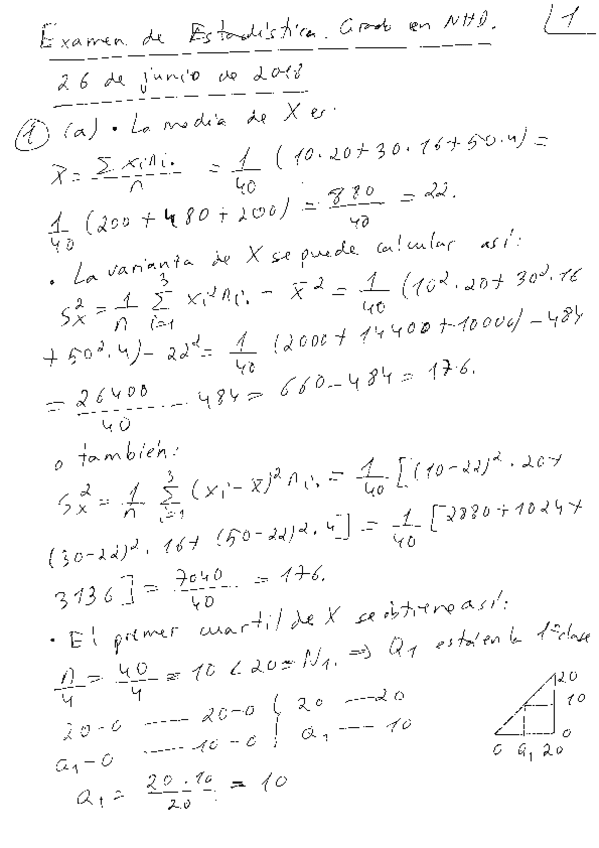 Examen de Estadística. Grado en NHD. 1
26 de junio de 2018
1 (a) • La media de X es:
x̄ = Σ xᵢnᵢ. / n = 1/40 (10·20+30·16+50·4) =
1/40 (200+480+200) = 880/40 = 22.
• La varianza de X se puede calcular así:
Sx² = 1/n Σ³ᵢ₌₁ xᵢ²nᵢ. − x̄² = 1/40 (10²·20+30²·16
+50²·4) − 22² = 1/40 (2000+14400+10000) − 484
= 26400/40 − 484 = 660 − 484 = 176.
o también:
Sx² = 1/n Σ³ᵢ₌₁ (xᵢ−x̄)²nᵢ. = 1/40 [(10−22)²·20+
(30−22)²·16+(50−22)²·4] = 1/40 [2880+1024+
3136] = 7040/40 = 176.
• El primer cuartil de X se obtiene así:
n/4 = 40/4 = 10 < 20 = N₁. ⇒ Q₁ está en la 1ª clase
20−0 ---- 20−0 { 20 ---- 20
a₁−0 ---- 10−0 { a₁ ---- 10
a₁ = 20·10/20 = 10
20
10
0
0 a₁ 20